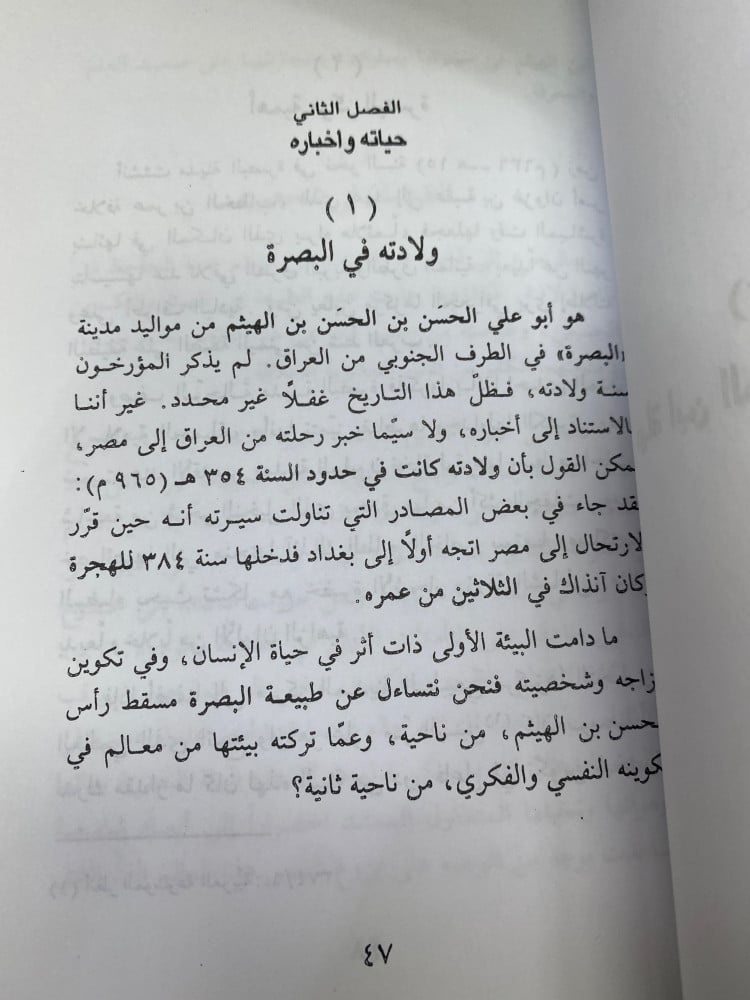 الفصل الثاني
حياته واخباره
(١)
ولادته في البصرة
هو أبو علي الحسَن بن الحسَن بن الهيثم من مواليد مدينة
«البصرة» في الطرف الجنوبي من العراق. لم يذكر المؤرخون
سنة ولادته، فظلّ هذا التاريخ غفلًا غير محدد. غير أننا
بالاستناد إلى أخباره، ولا سيّما خبر رحلته من العراق إلى مصر،
يمكن القول بأن ولادته كانت في حدود السنة ٣٥٤ هـ (٩٦٥ م):
فقد جاء في بعض المصادر التي تناولت سيرته أنه حين قرّر
الارتحال إلى مصر اتجه أولاً إلى بغداد فدخلها سنة ٣٨٤ للهجرة
وكان آنذاك في الثلاثين من عمره.
ما دامت البيئة الأولى ذات أثر في حياة الإنسان، وفي تكوين
مزاجه وشخصيته فنحن نتساءل عن طبيعة البصرة مسقط رأس
الحسن بن الهيثم، من ناحية، وعمّا تركته بيئتها من معالم في
تكوينه النفسي والفكري، من ناحية ثانية؟
٤٧